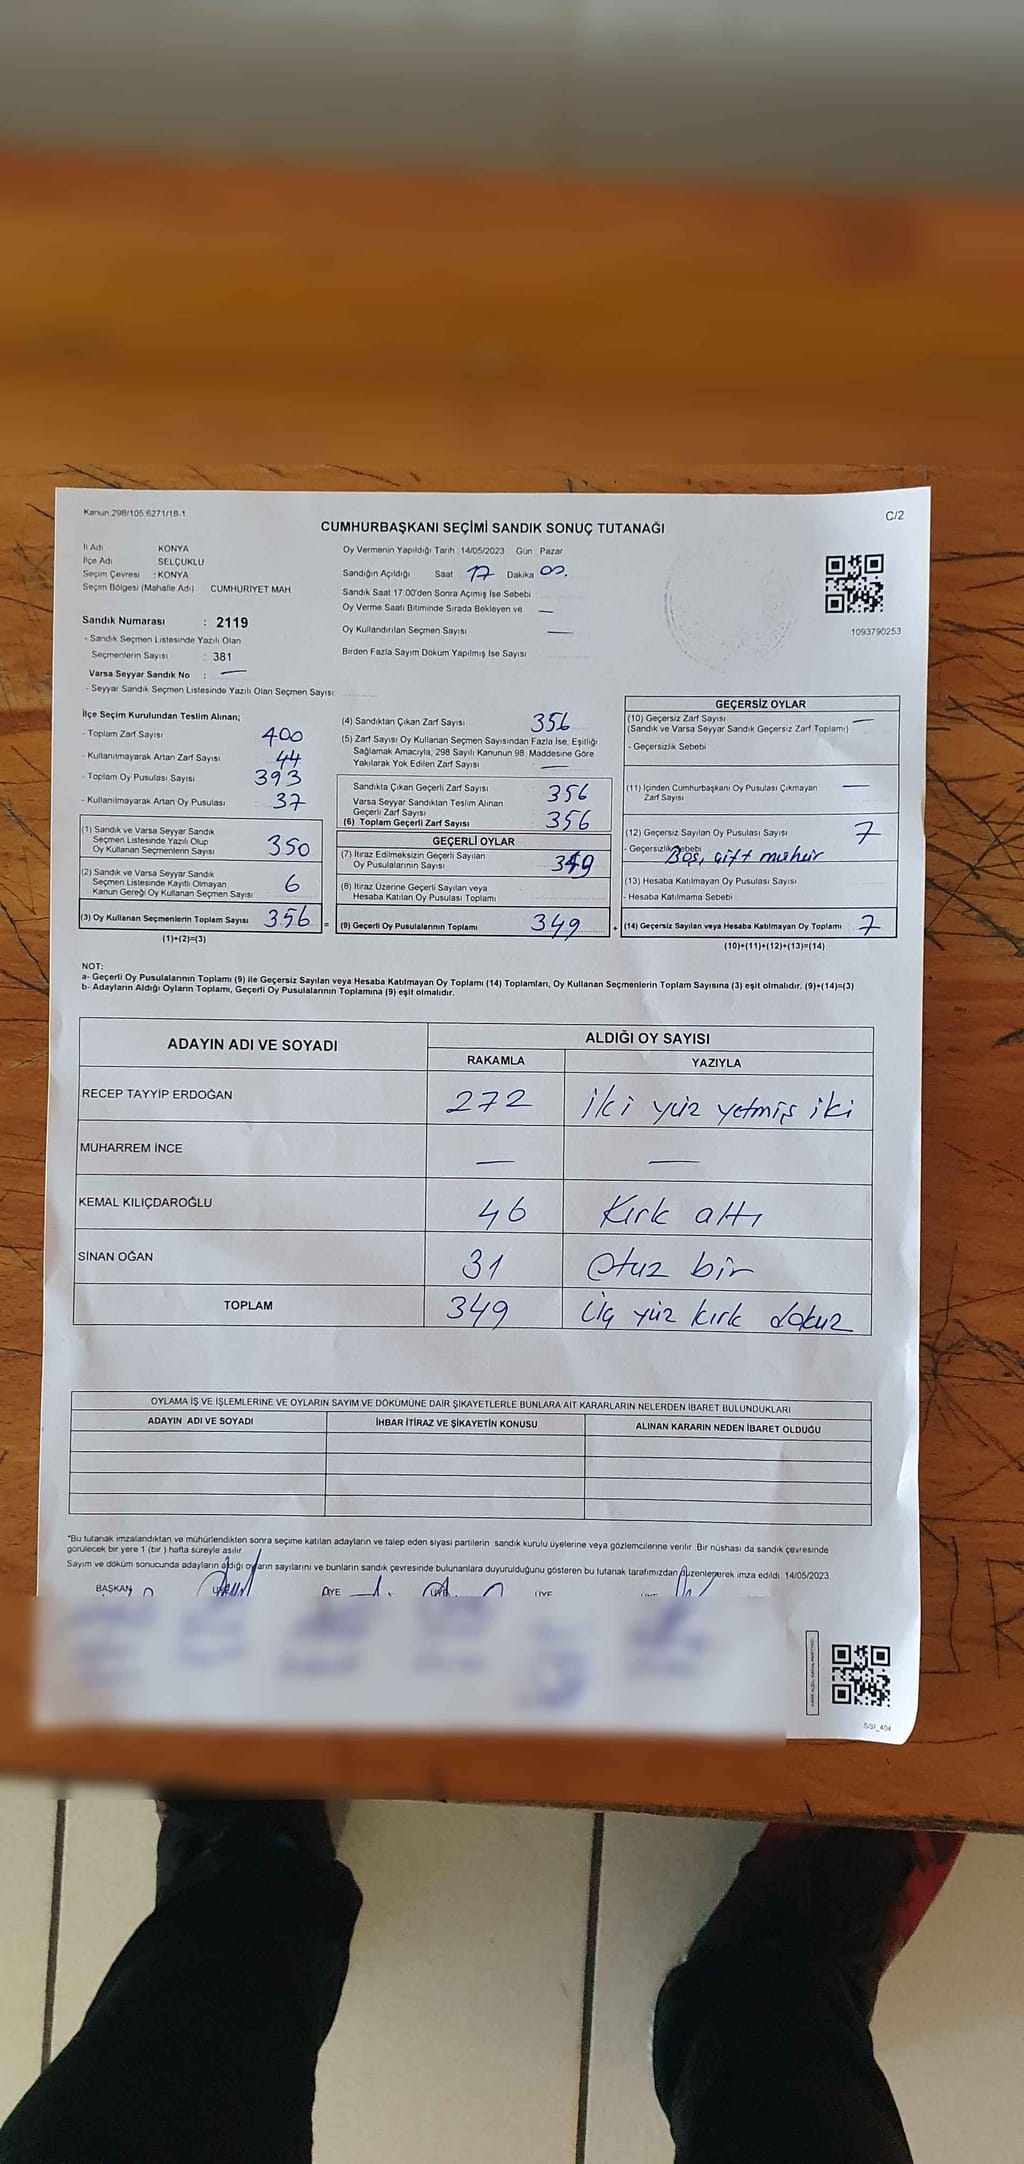 Kanun 298/105,6271/18-1
C/2
CUMHURBAŞKANI SEÇİMİ SANDIK SONUÇ TUTANAĞI
İl Adı KONYA
İlçe Adı SELÇUKLU
Seçim Çevresi : KONYA
Seçim Bölgesi (Mahalle Adı) CUMHURİYET MAH
Sandık Numarası : 2119
- Sandık Seçmen Listesinde Yazılı Olan
Seçmenlerin Sayısı : 381
Varsa Seyyar Sandık No : —
- Seyyar Sandık Seçmen Listesinde Yazılı Olan Seçmen Sayısı:
Oy Vermenin Yapıldığı Tarih 14/05/2023 Gün Pazar
Sandığın Açıldığı Saat 17 Dakika 00.
Sandık Saat 17.00'den Sonra Açımış İse Sebebi
Oy Verme Saati Bitiminde Sırada Bekleyen ve —
Oy Kullandırılan Seçmen Sayısı —
Birden Fazla Sayım Döküm Yapılmış İse Sayısı
1093790253
İlçe Seçim Kurulundan Teslim Alınan;
- Toplam Zarf Sayısı 400
- Kullanılmayarak Artan Zarf Sayısı 44
- Toplam Oy Pusulası Sayısı 393
- Kullanılmayarak Artan Oy Pusulası 37
(1) Sandık ve Varsa Seyyar Sandık
Seçmen Listesinde Yazılı Olup
Oy Kullanan Seçmenlerin Sayısı 350
(2) Sandık ve Varsa Seyyar Sandık
Seçmen Listesinde Kayıtlı Olmayan
Kanun Gereği Oy Kullanan Seçmen Sayısı 6
(3) Oy Kullanan Seçmenlerin Toplam Sayısı 356 =
(1)+(2)=(3)
(4) Sandıktan Çıkan Zarf Sayısı 356
(5) Zarf Sayısı Oy Kullanan Seçmen Sayısından Fazla İse, Eşitliği
Sağlamak Amacıyla, 298 Sayılı Kanunun 98. Maddesine Göre
Yakılarak Yok Edilen Zarf Sayısı —
Sandıkta Çıkan Geçerli Zarf Sayısı 356
Varsa Seyyar Sandıktan Teslim Alınan
Geçerli Zarf Sayısı
(6) Toplam Geçerli Zarf Sayısı 356
GEÇERLİ OYLAR
(7) İtiraz Edilmeksizin Geçerli Sayılan
Oy Pusulalarının Sayısı 349
(8) İtiraz Üzerine Geçerli Sayılan veya
Hesaba Katılan Oy Pusulası Toplamı
(9) Geçerli Oy Pusulalarının Toplamı 349 +
GEÇERSİZ OYLAR
(10) Geçersiz Zarf Sayısı —
(Sandık ve Varsa Seyyar Sandık Geçersiz Zarf Toplamı)
- Geçersizlik Sebebi
(11) İçinden Cumhurbaşkanı Oy Pusulası Çıkmayan —
Zarf Sayısı
(12) Geçersiz Sayılan Oy Pusulası Sayısı 7
- Geçersizlik Sebebi Boş, çift mühür
(13) Hesaba Katılmayan Oy Pusulası Sayısı
- Hesaba Katılmama Sebebi
(14) Geçersiz Sayılan veya Hesaba Katılmayan Oy Toplamı 7
(10)+(11)+(12)+(13)=(14)
NOT:
a- Geçerli Oy Pusulalarının Toplamı (9) ile Geçersiz Sayılan veya Hesaba Katılmayan Oy Toplamı (14) Toplamları, Oy Kullanan Seçmenlerin Toplam Sayısına (3) eşit olmalıdır. (9)+(14)=(3)
b- Adayların Aldığı Oyların Toplamı, Geçerli Oy Pusulalarının Toplamına (9) eşit olmalıdır.
ADAYIN ADI VE SOYADI ALDIĞI OY SAYISI
RAKAMLA YAZIYLA
RECEP TAYYİP ERDOĞAN 272 iki yüz yetmiş iki
MUHARREM İNCE — —
KEMAL KILIÇDAROĞLU 46 Kırk altı
SİNAN OĞAN 31 Otuz bir
TOPLAM 349 üç yüz kırk dokuz
OYLAMA İŞ VE İŞLEMLERİNE VE OYLARIN SAYIM VE DÖKÜMÜNE DAİR ŞİKAYETLERLE BUNLARA AİT KARARLARIN NELERDEN İBARET BULUNDUKLARI
ADAYIN ADI VE SOYADI İHBAR İTİRAZ VE ŞİKAYETİN KONUSU ALINAN KARARIN NEDEN İBARET OLDUĞU
*Bu tutanak imzalandıktan ve mühürlendikten sonra seçime katılan adayların ve talep eden siyasi partilerin sandık kurulu üyelerine veya gözlemcilerine verilir. Bir nüshası da sandık çevresinde
görülecek bir yere 1 (bir) hafta süreyle asılır.
Sayım ve döküm sonucunda adayların aldığı oyların sayılarını ve bunların sandık çevresinde bulunanlara duyurulduğunu gösteren bu tutanak tarafımızdan düzenlenerek imza edildi. 14/05/2023
BAŞKAN ÜYE ÜYE ÜYE ÜYE
SSI_404